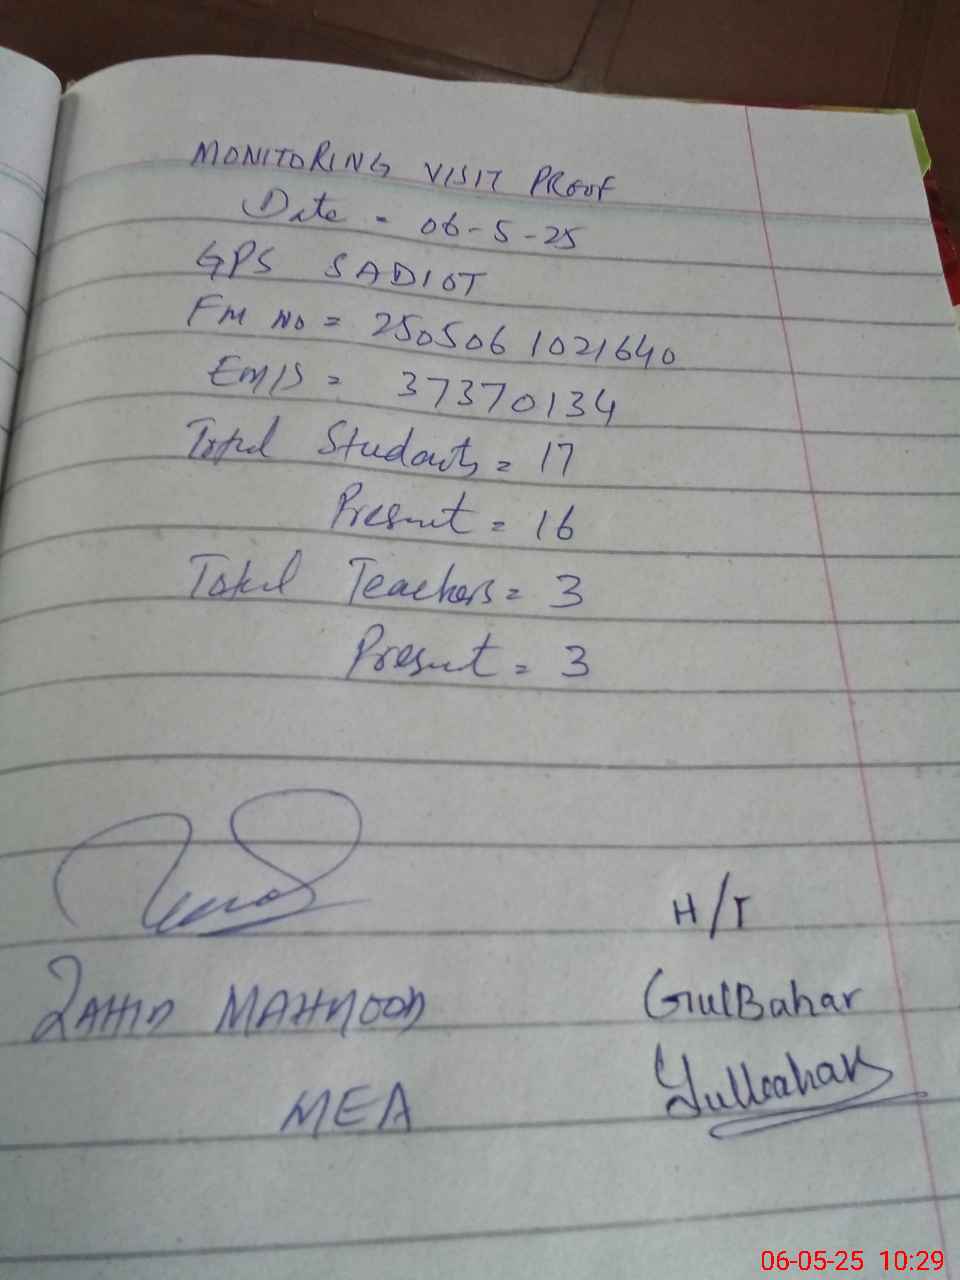 MONITORING VISIT PROOF
Date = 06-5-25
GPS SADIOT
FM NO = 2505061021640
EMIS = 37370134
Total Students = 17
Present = 16
Total Teachers = 3
Present = 3
H/T
ZAHID MAHMOOD
GulBahar
Gulbahar
MEA
06-05-25 10:29